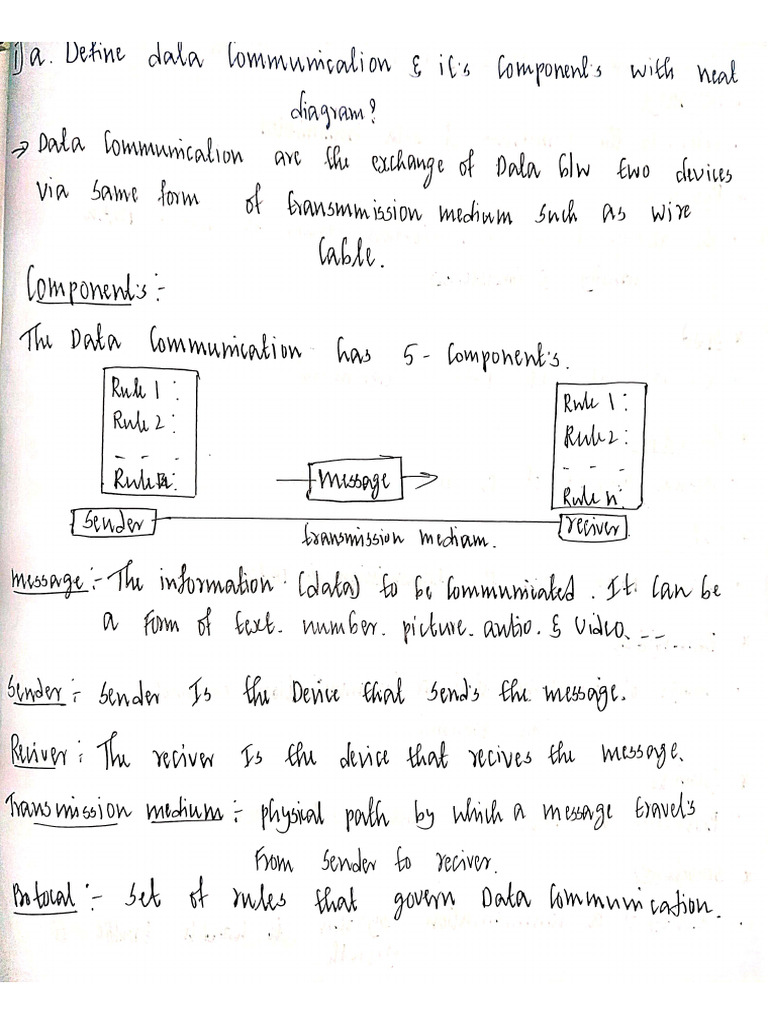 1) a. Define data Communication & it's Components with neat
diagram?
→ Data Communication are the exchange of Data b/w two devices
via same form of transmmission medium such as wire
Cable.
Components:-
The Data Communication has 5 - Components.
Rule 1 :
Rule 2 :
- - -
Rule n:
Rule 1 :
Rule 2 :
- - -
Rule n:
message
Sender
transmission mediam.
reciver
message:- The information (data) to be Communicated. It can be
a form of text. number. picture. antio. & video. --
Sender:- Sender Is the Device that Send's the message.
Reciver: The reciver Is the device that recives the message.
Transmission medium:- physical path by which a message travel's
From Sender to reciver.
Protocal:- Set of rules that govern Data Communication.